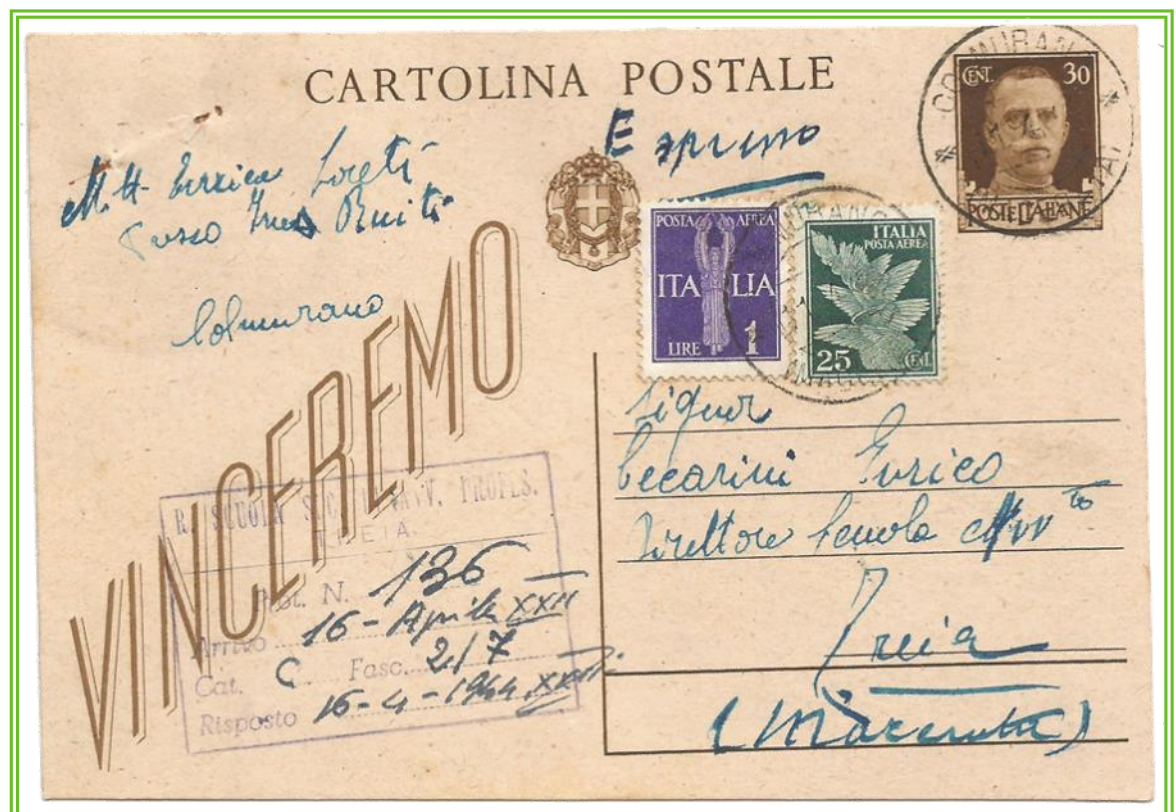 CARTOLINA POSTALE
CENT. 30
POSTE ITALIANE
Espresso
Loreti
Colmurano
POSTA AEREA
ITALIA
LIRE 1
ITALIA
POSTA AEREA
25 CENT.
VINCEREMO
R. SCUOLA SEC. AVV. PROFES.
TREIA
Prot. N. 136
Arrivo 16-Aprile XXII
Cat. C Fasc. 2/7
Risposto 16-4-1944 XXII
Signor
Ceccarini Enrico
Direttore Scuola Avv to
Treia
(Macerata)